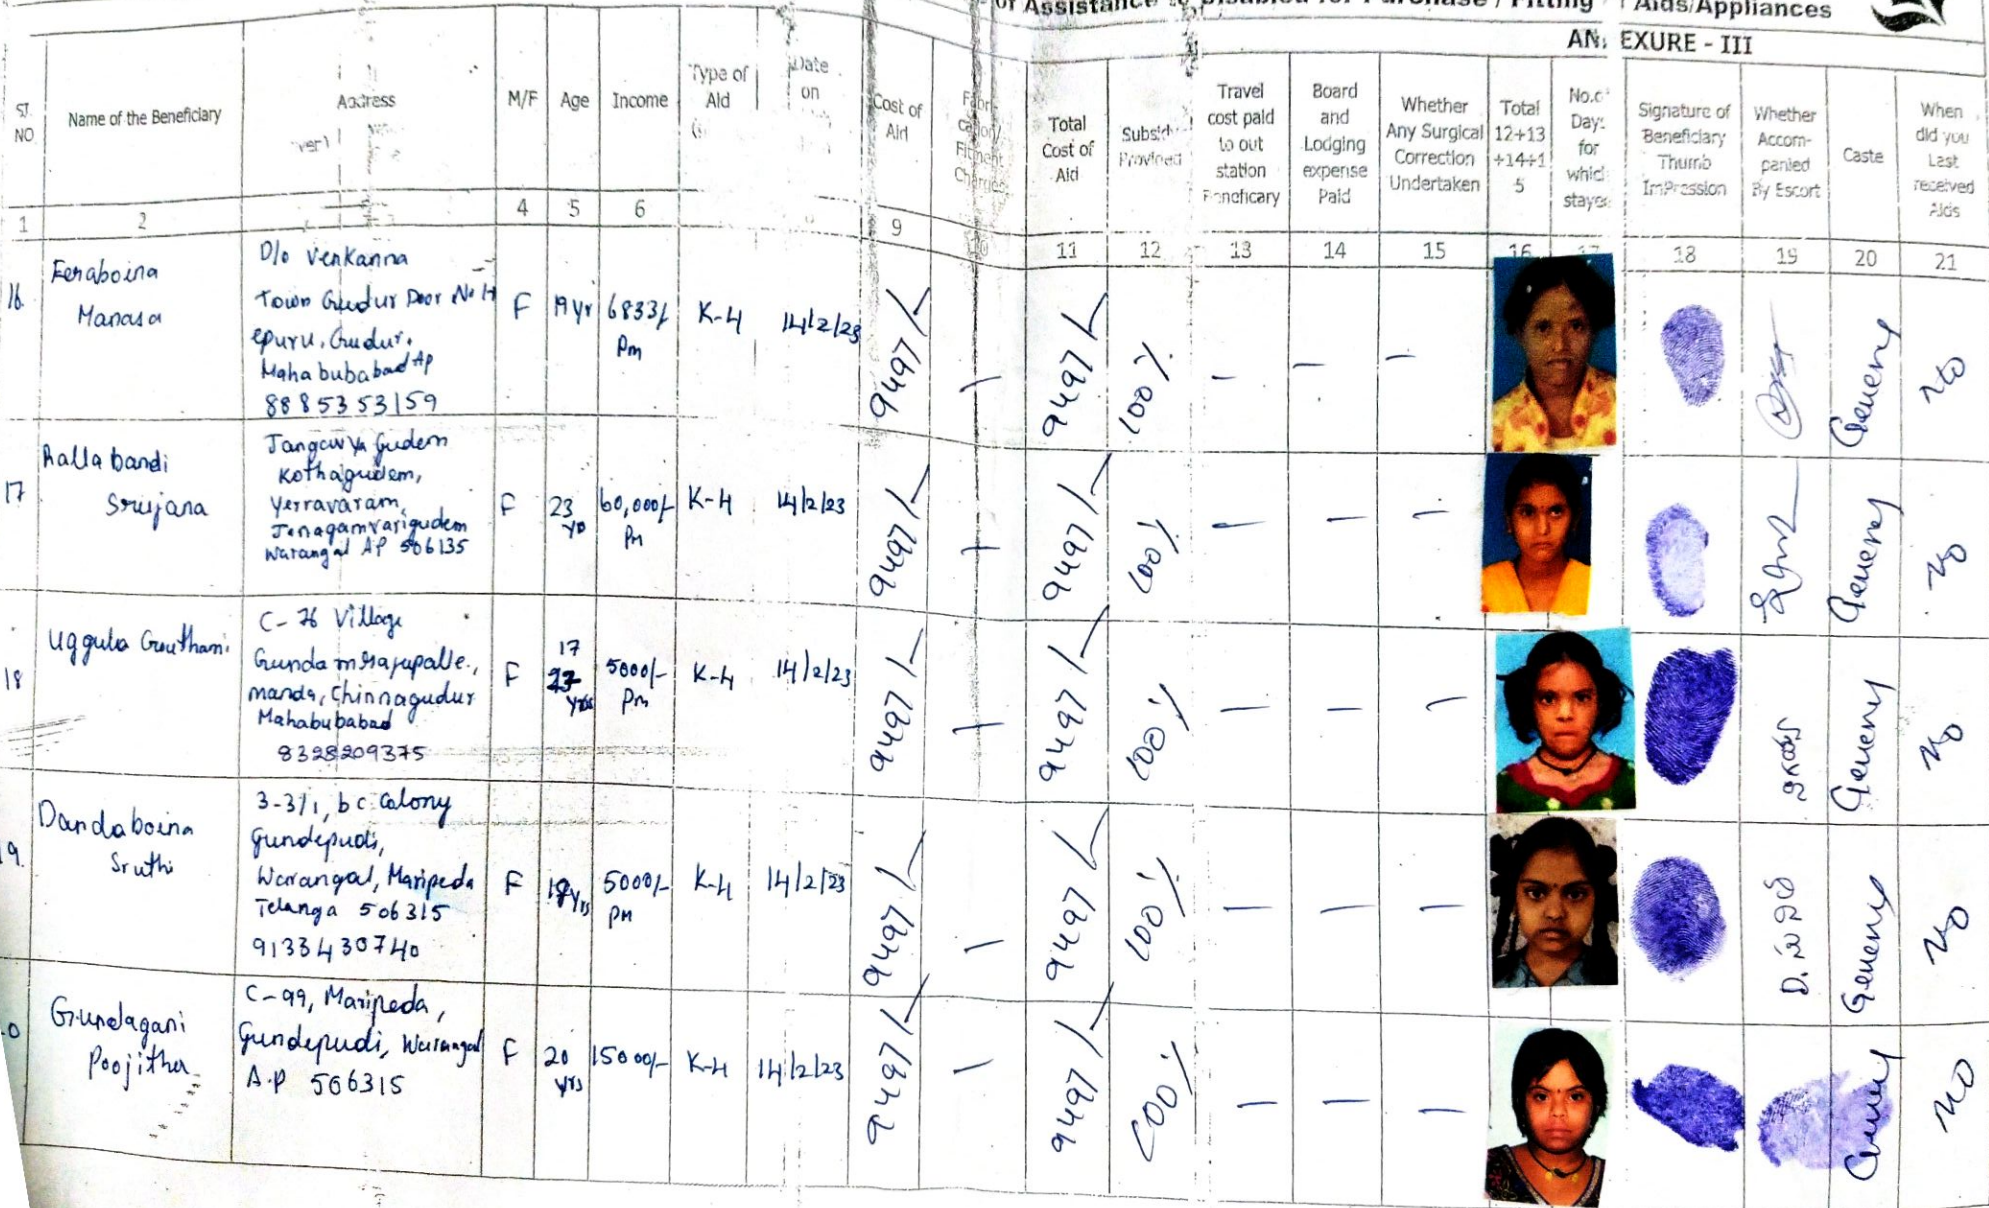 of Assistance to Disabled for Purchase / Fitting Aids/Appliances
ANNEXURE - III
Sl. NO
Name of the Beneficiary
Address
M/F
Age
Income
Type of Aid
Date on
Cost of Aid
Fabrication/ Fitment Charges
Total Cost of Aid
Subsidy Provided
Travel cost paid to out station Beneficary
Board and Lodging expense Paid
Whether Any Surgical Correction Undertaken
Total 12+13+14+15
No.of Days for which stayed
Signature of Beneficiary Thumb ImPression
Whether Accompanied By Escort
Caste
When did you Last received Aids
1 2 4 5 6 9 10 11 12 13 14 15 16 17 18 19 20 21
16 Eeraboina Manasa
D/o Venkanna
Town Gudur Door No
epuru, Gudur,
Mahabubabad AP
8885353159
F 19 yr 6833/ Pm K-4 14/2/23 9497/- 9497/- 100% General No
17 Rallabandi Srujana
Gudem
Kothagudem,
Yerravaram,
Janagamvarigudem
Warangal AP 506135
F 23 60,000/- Pm K-4 14/2/23 9497/- 9497/- 100% General No
18 Uggula Gouthami
C-76 Village
manda, Chinnagudur
Mahabubabad
8328209375
F 17 yrs 5000/- Pm K-4 14/2/23 9497/- 9497/- 100% General No
19. Dandaboina Sruthi
3-3/1, bc colony
Gundepudi,
Warangal, Maripeda
Telanga 506315
9133430740
F yrs 5000/- PM K-4 14/2/23 9497/- 9497/- 100% General No
Gundagani Poojitha
C-99, Maripeda,
Gundepudi, Warangal
A.P 506315
F 20 yrs 15000/- K-4 14/2/23 9497/- 9497/- 100% No